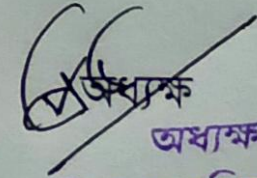 অধ্যক্ষ
অধ্যক্ষ